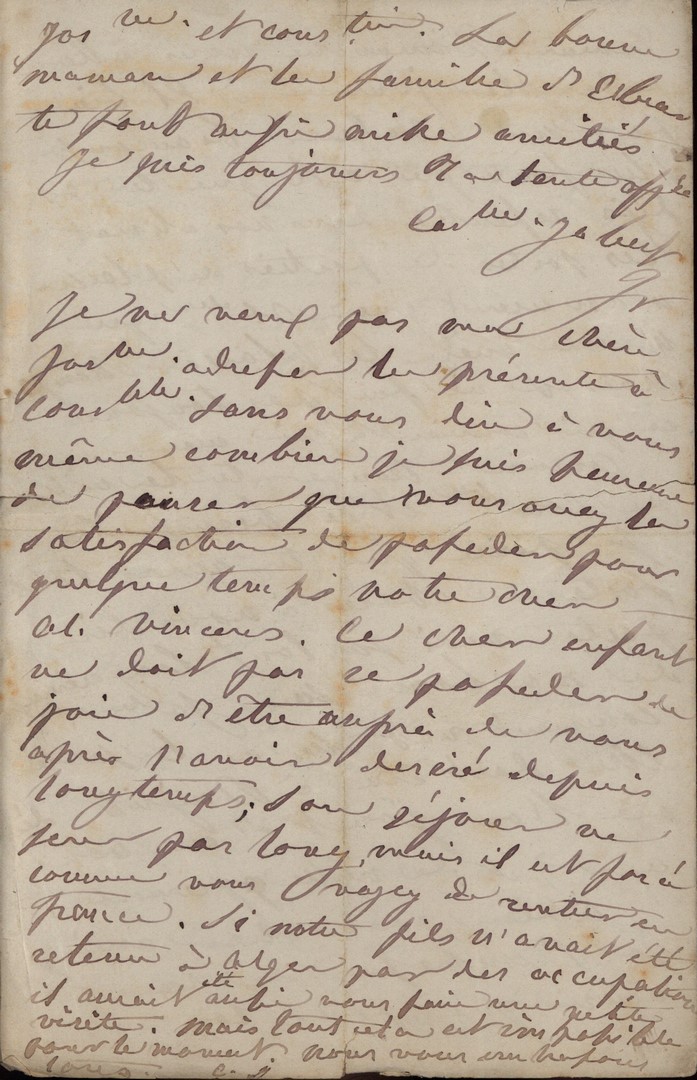 Jos ne. et cous tin. La bonne
maman et la famille d'
te font aussi mille amitiés
je suis toujours Ta tante aff née
Cas ne.
Je ne veux pas ma chère
Jos ne. adresser la présente à
Const tin. sans vous dire à vous
même combien je suis heureuse
de penser que vous avez la
satisfaction de posseder pour
quelque temps notre cher
al. vincens. Ce cher enfant
ne doit pas se posseder de
joie d'être auprès de vous
après l'avoir desiré depuis
longtemps; son séjour ne
sera pas long, mais il est forcé
comme vous voyez de rentrer en
france. Si notre fils n'avait été
retenu à alger par des occupations
il aurait été aussi vous faire une petite
visite. mais tout cela est impossible
pour le moment. nous vous embrassons